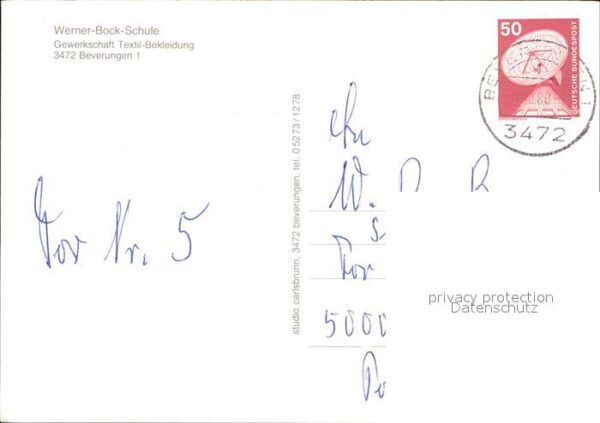 Werner-Bock-Schule
Gewerkschaft Textil-Bekleidung
3472 Beverungen 1
50
DEUTSCHE BUNDESPOST
3472
studio carlsbrunn, 3472 beverungen, tel. 05273/1278
Tor Nr. 5
An
W. D R
S
Tor
5000
privacy protection
Datenschutz